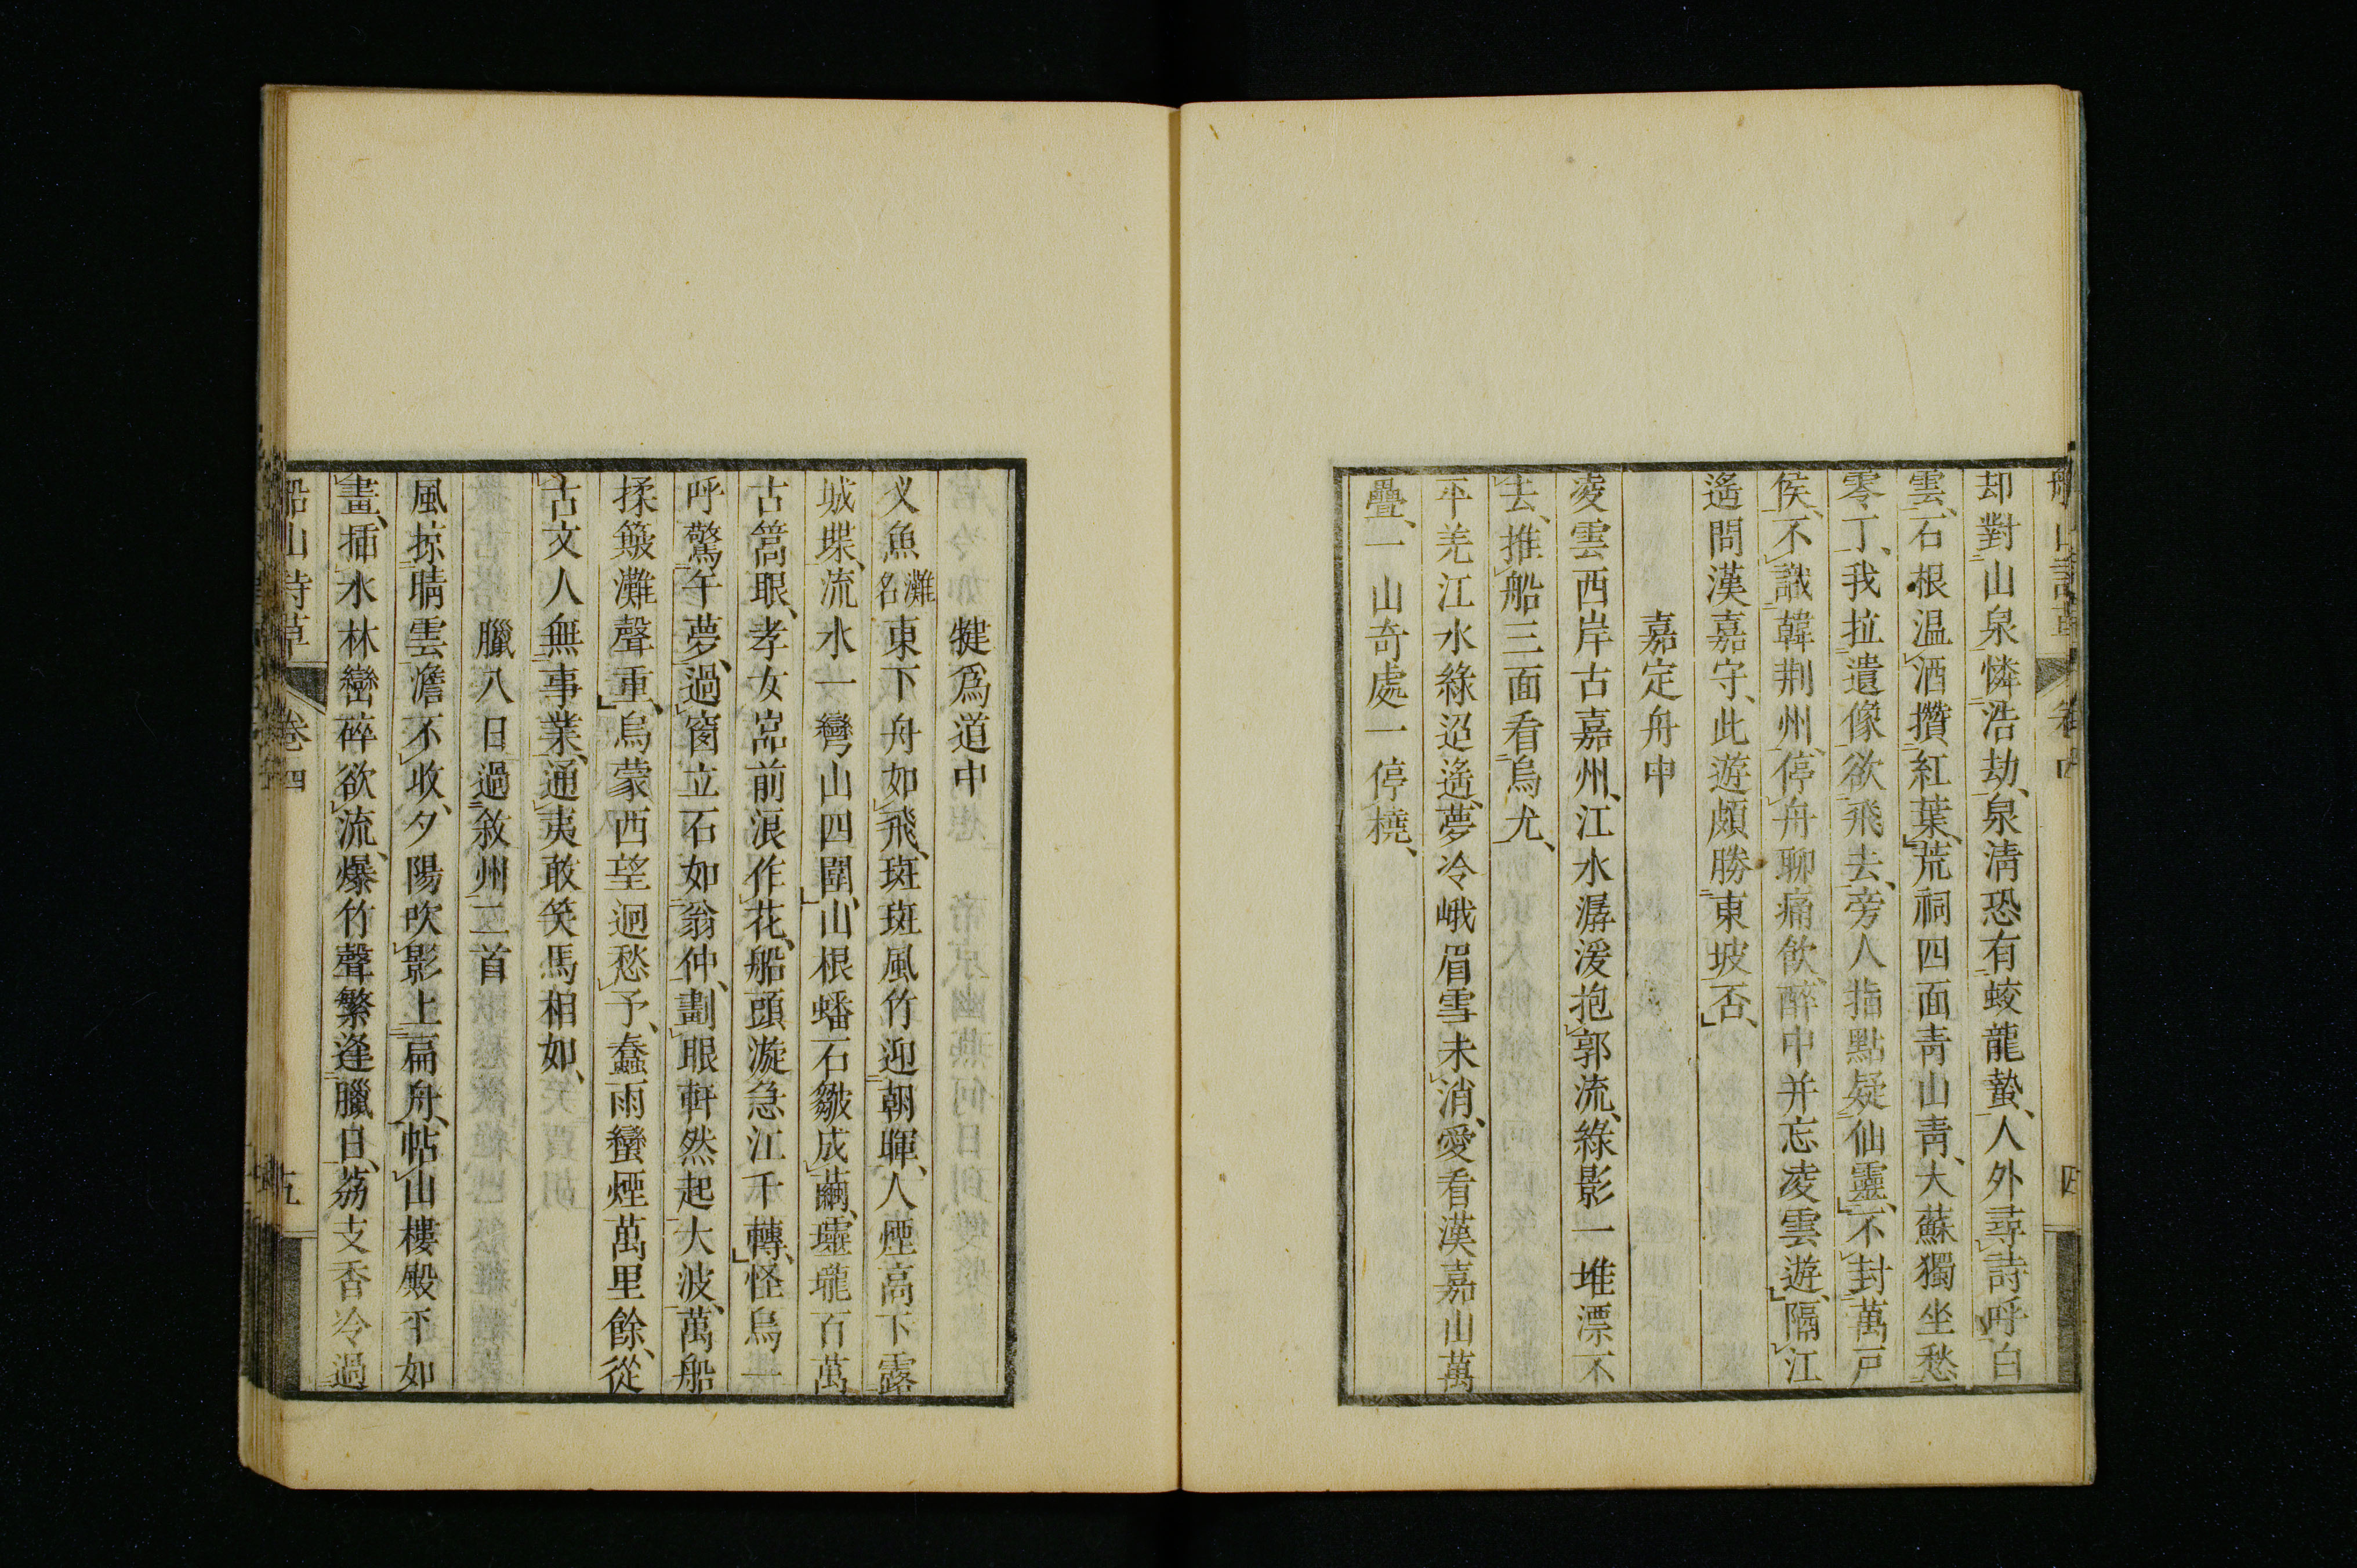 船山詩草 卷四 四
却對山泉憐浩劫、泉清恐有蛟龍蟄、人外尋詩呼白
雲、石根温酒攢紅葉、荒祠四面青山青、大蘇獨坐愁
零丁、我拉遺像欲飛去、旁人指點疑仙靈、不封萬戸
侯、不識韓荆州、停舟聊痛飲、醉中并忘凌雲遊、隔江
遙問漢嘉守、此遊頗勝東坡否、
嘉定舟中
凌雲西岸古嘉州、江水潺湲抱郭流、綠影一堆漂不
去、推船三面看烏尤、
平羌江水綠迢遙、夢冷峨眉雪未消、愛看漢嘉山萬
疊、一山奇處一停橈、
犍爲道中
义魚灘名東下舟如飛、斑斑風竹迎朝暉、人煙高下露
城堞、流水一彎山四圍、山根蟠石皺成繭、瓏百萬
古篙眼、孝女㟧前浪作花、船頭漩急江千轉、怪烏一
呼驚午夢、過窗立石如翁仲、劃眼軒然起大波、萬船
揉簸灘聲重、烏蒙西望迥愁予、蠢雨蠻煙萬里餘、從
古文人無事業、通夷敢笑馬相如、
臘八日過敘州二首
風掠晴雲澹不收、夕陽吹影上扁舟、帖山樓殿平如
畫、插水林巒碎欲流、爆竹聲繁逢臘日、荔支香冷過
船山詩草 卷四 五